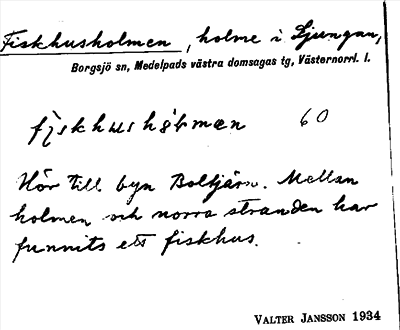 Fiskhusholmen, holme i Ljungan,
Borgsjö sn, Medelpads västra domsagas tg, Västernorrl. l.
60
Hör till byn Boltjärn. Mellan
holmen och norra stranden har
funnits ett fiskhus.
VALTER JANSSON 1934